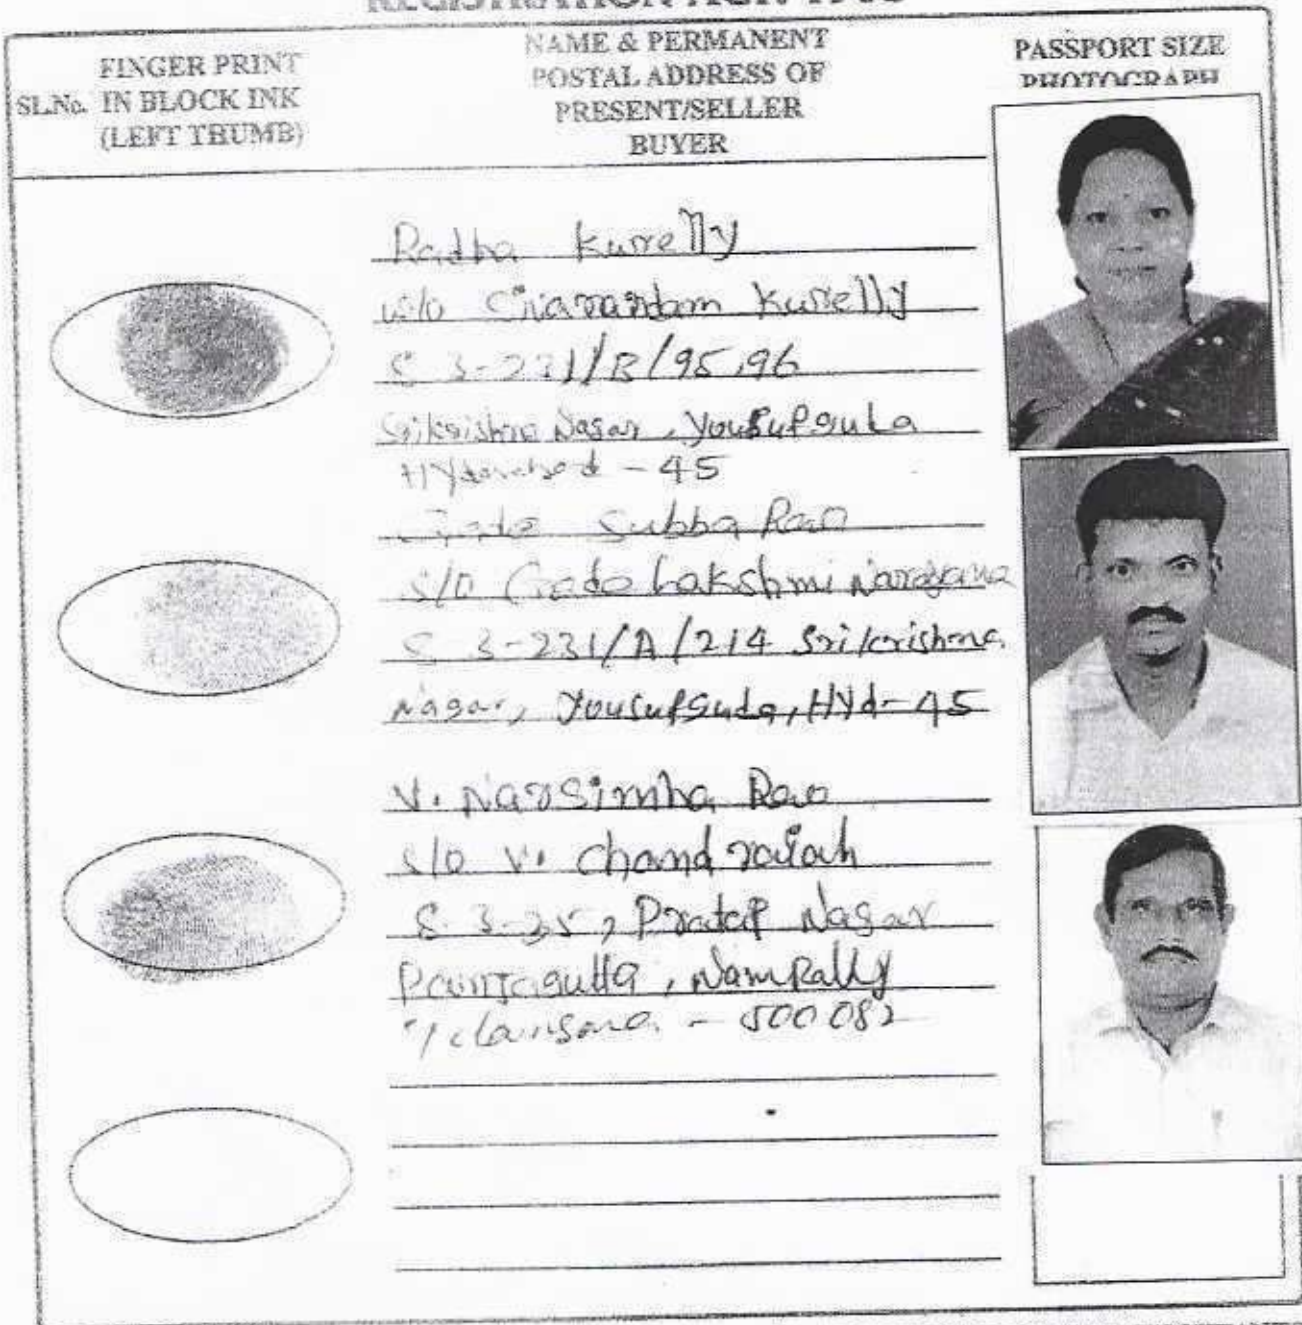 REGISTRATION ACT. 1908
SL.No. FINGER PRINT IN BLOCK INK (LEFT THUMB)
NAME & PERMANENT POSTAL ADDRESS OF PRESENT/SELLER BUYER
PASSPORT SIZE PHOTOGRAPH
Radha Kurelly
w/o Sivaratnam Kurelly
8-3-231/B/95,96
Srikrishna Nagar, Yousufguda
Hyderabad - 45
Gade Subba Rao
S/o Gade Lakshmi Narayana
8-3-231/A/214 Srikrishna
Nagar, Yousufguda, Hyd-45
V. Narsimha Rao
S/o V. Chandraiah
8-3-35, Pratap Nagar
Panjagutta, Nampally
Telangana - 500082